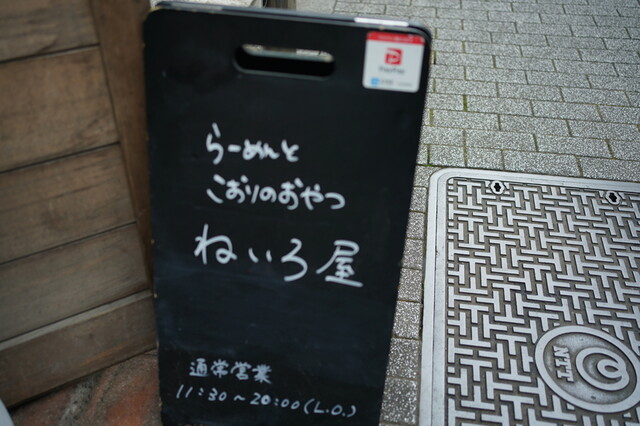 PayPay
らーめんと
こおりのおやつ
ねいろ屋
通常営業
11:30～20:00(L.O.)
NTT